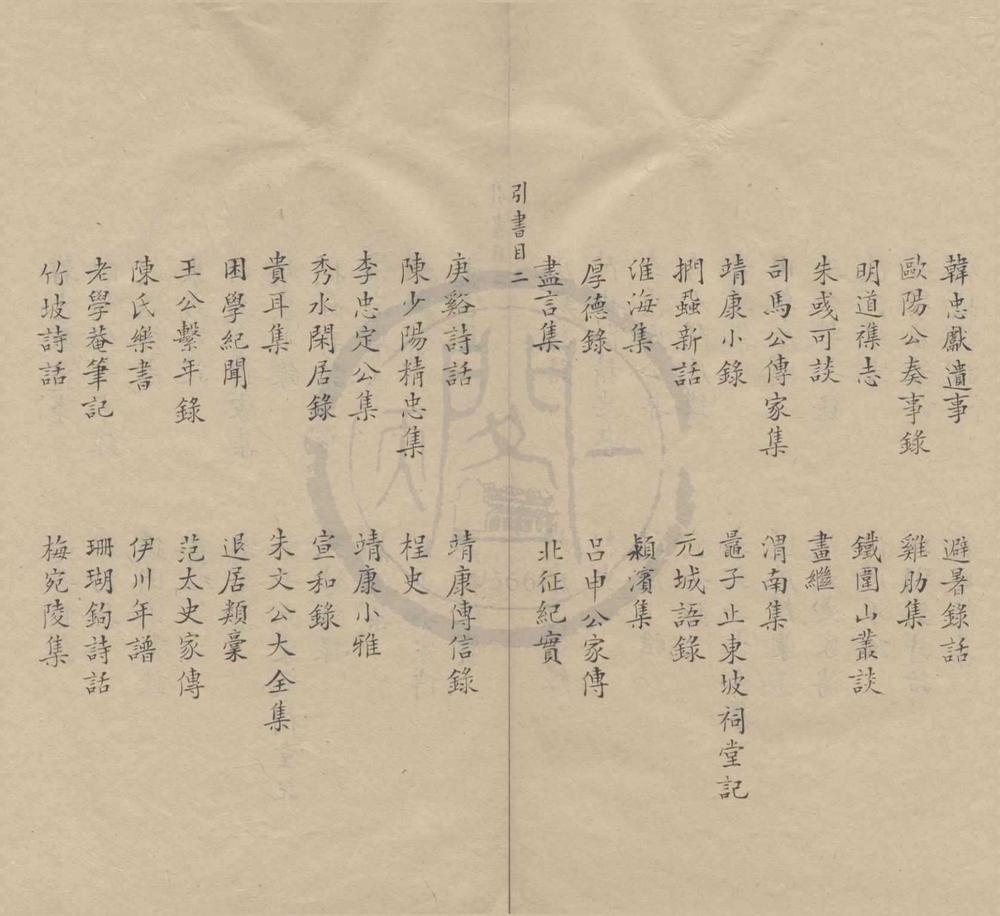 韓忠獻遺事 避暑錄話
歐陽公奏事錄 雞肋集
明道襍志 鐵圍山叢談
朱彧可談 畫繼
司馬公傳家集 渭南集
靖康小錄 鼂子止東坡祠堂記
捫蝨新話 元城語錄
淮海集 潁濱集
厚德錄 呂申公家傳
盡言集 北征紀實
引書目二
庚谿詩話 靖康傳信錄
陳少陽精忠集 桯史
李忠定公集 靖康小雅
秀水閑居錄 宣和錄
貴耳集 朱文公大全集
困學紀聞 退居類稾
王公繫年錄 范太史家傳
陳氏樂書 伊川年譜
老學菴筆記 珊瑚鉤詩話
竹坡詩話 梅宛陵集